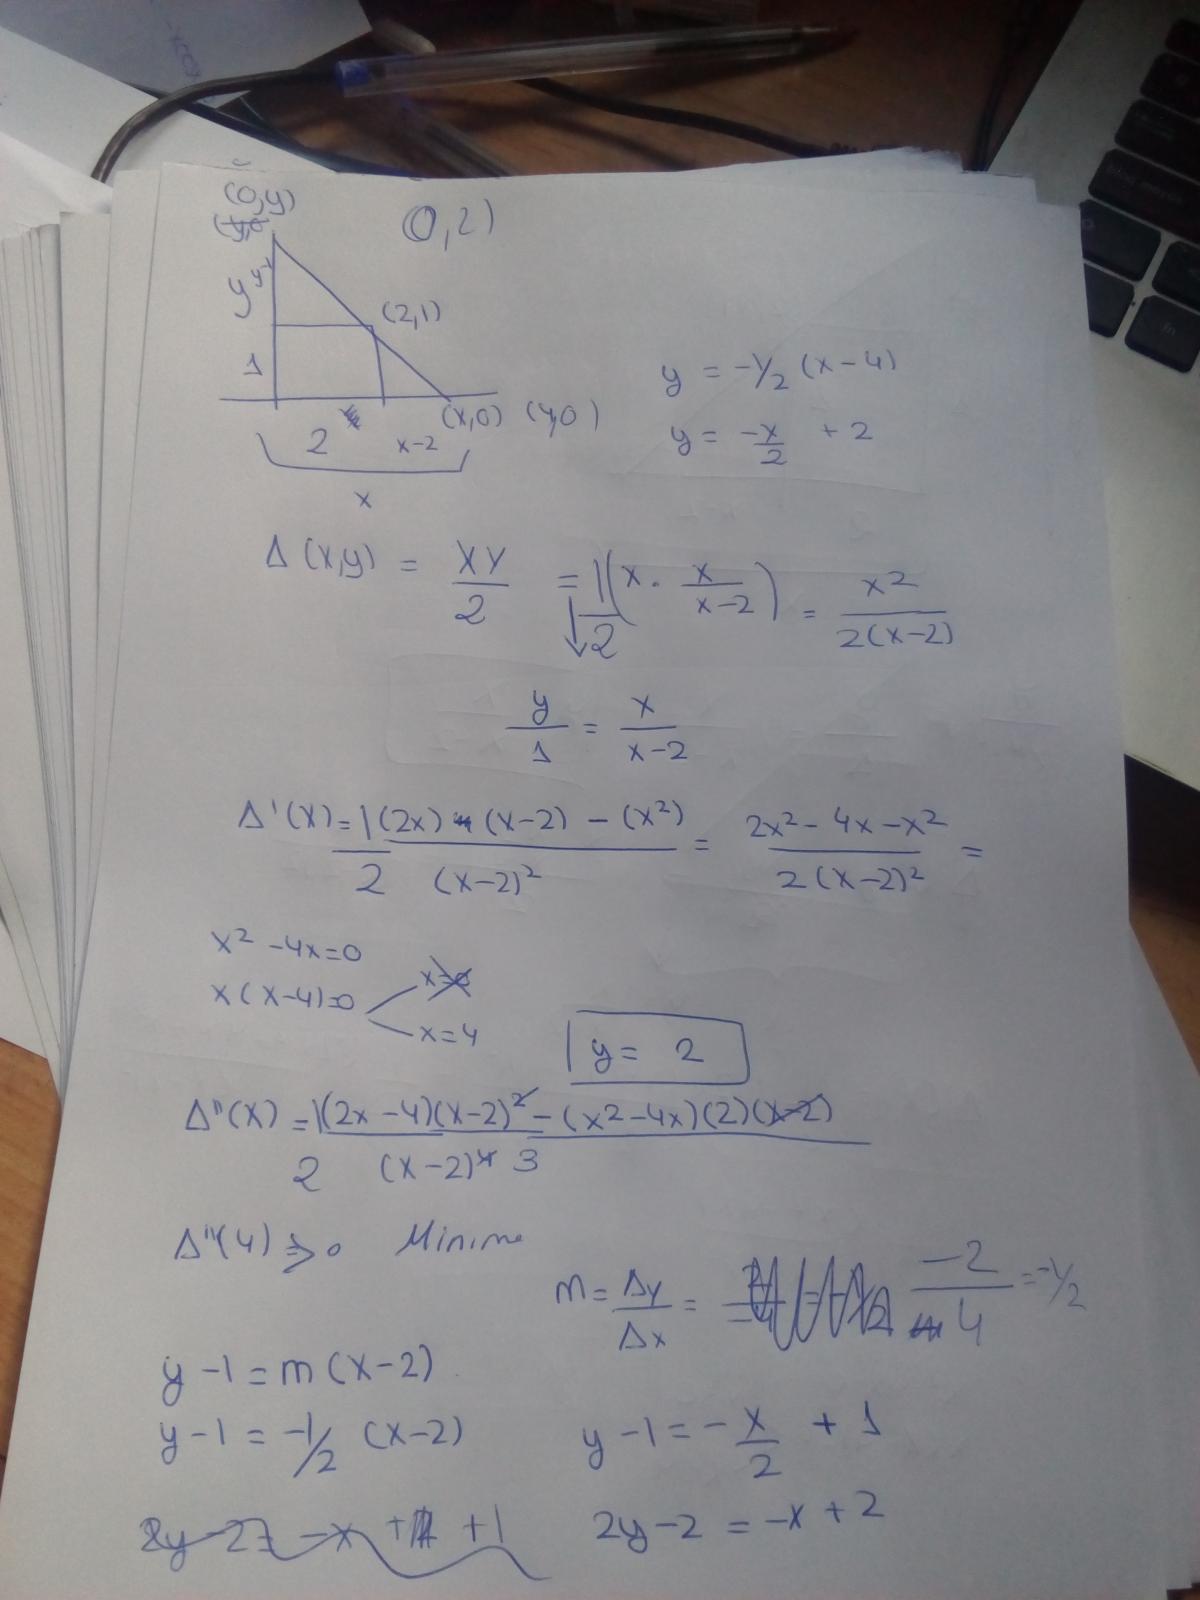 (0,y)
0,2)
y y-1
(2,1)
1
y = -1/2 (x-4)
(x,0) (4,0)
2 x-2
y = -x/2 + 2
x
Δ(x,y) = XY/2 = 1/2 (x · x/(x-2)) = x²/(2(x-2))
y/1 = x/(x-2)
Δ'(x) = 1/2 (2x)(x-2) - (x²)/(x-2)² = (2x² - 4x - x²)/(2(x-2)²) =
x² - 4x = 0
x(x-4) = 0
x=0
x=4
y = 2
Δ''(x) = 1/2 ((2x-4)(x-2)² - (x²-4x)(2)(x-2))/(x-2)⁴ 3
Δ''(4) > 0 Minimo
m = Δy/Δx = -2/4 = -1/2
y - 1 = m(x-2)
y - 1 = -1/2 (x-2)
y - 1 = -x/2 + 1
2y - 2 = -x + 1
2y - 2 = -x + 2